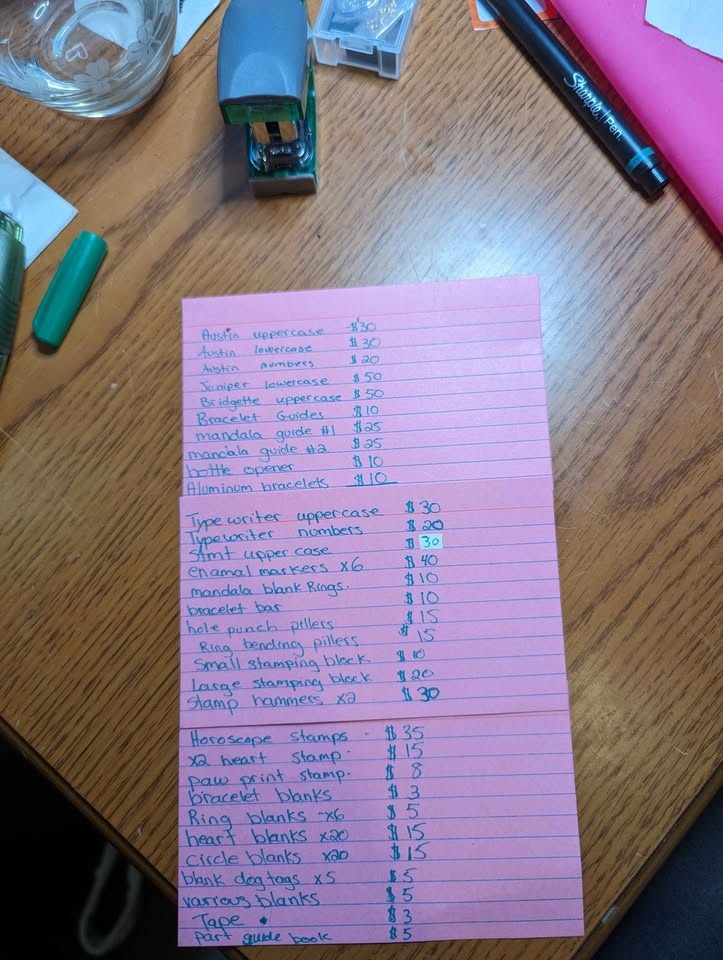 Sharpie Pen.
Austin uppercase -$30
Austin lowercase $30
Austin numbers $20
Juniper lowercase $50
Bridgette uppercase $50
Bracelet Guides $10
mandala guide #1 $25
mandala guide #2 $25
bottle opener $10
Aluminum bracelets $10
Typewriter uppercase $30
Typewriter numbers $20
Stmt upper case $30
enamal markers x6 $40
mandala blank Rings. $10
bracelet bar $10
hole punch pillers $15
Ring bending pillers $15
Small stamping block $10
Large stamping block $20
Stamp hammers x2 $30
Horoscope stamps - $35
x2 heart stamp - $15
paw print stamp. $8
bracelet blanks $3
Ring blanks -x6 $5
heart blanks x20 $15
circle blanks x20 $15
blank dog tags x5 $5
various blanks $5
Tape . $3
part guide book $5